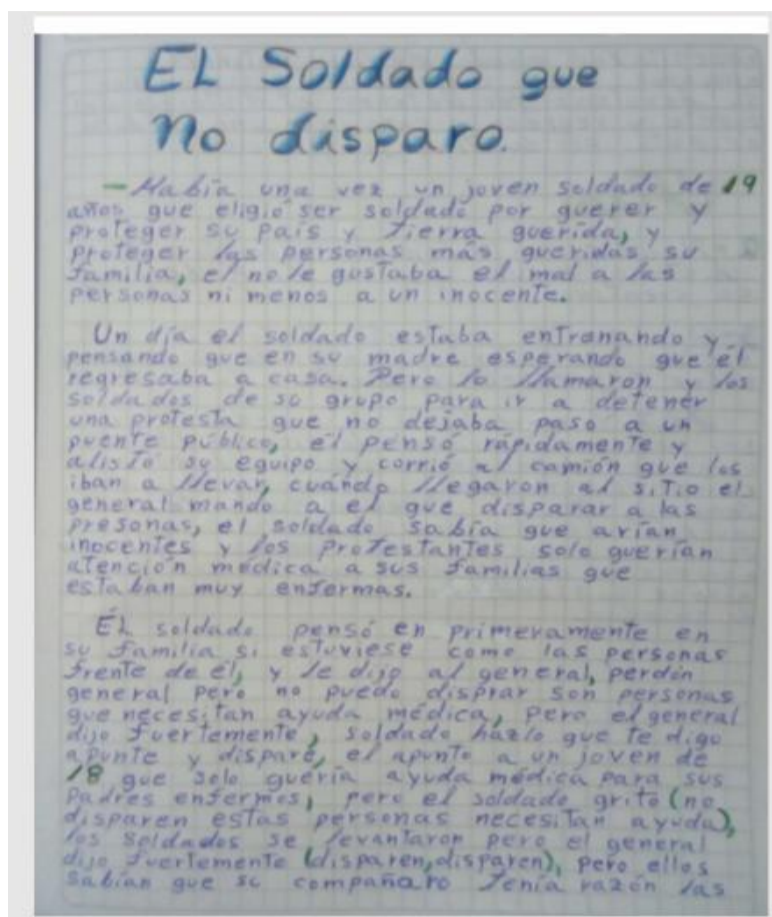 EL Soldado que
No disparo.
- Había una vez un joven soldado de 19
años que eligió ser soldado por querer y
proteger su país y Tierra querida, y
proteger las personas más queridas su
familia, el no le gustaba el mal a las
personas ni menos a un inocente.
Un día el soldado estaba entranando y
pensando que en su madre esperando que él
regresaba a casa. Pero lo llamaron y los
soldados de su grupo para ir a detener
una protesta que no dejaba paso a un
puente público, él pensó rápidamente y
alisto su equipo y corrió al camión que los
iban a llevar, cuándo llegaron al sitio el
general mando a el que disparar a las
presonas, el soldado sabía que arían
inocentes y los Protestantes solo querían
atención médica a sus familias que
estaban muy enfermas.
ÉL soldado pensó en primeramente en
su familia si estuviese como las personas
frente de él, y le dijo al general, perdón
general pero no puedo disprar son personas
que necesitan ayuda médica, pero el general
dijo fuertemente, soldado hazlo que te digo
apunte y dispare, el apunto a un joven de
18 que solo quería ayuda médica para sus
padres enfermos, pero el soldado grito (no
disparen estas personas necesitan ayuda),
los soldados se levantaron pero el general
dijo fuertemente (disparen, disparen), pero ellos
sabían que su compañaro Tenía razón las